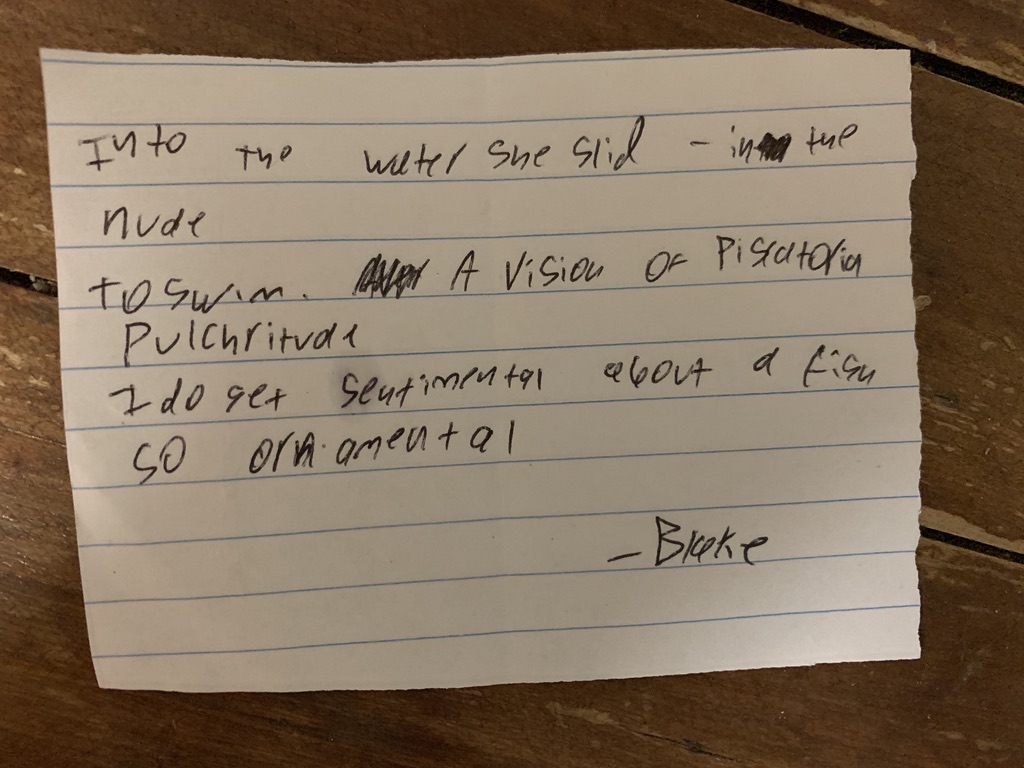 Into the water she slid - in the
nude
to swim. A vision of Piscatoria
Pulchritude
I do get sentimental about a fish
so ornamental
- Blake